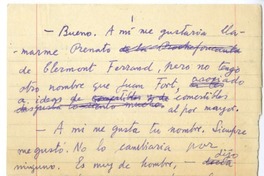 1
— Bueno. A mí me gustaría lla-
marme Renato de la Rochefoucauld
de Clermont Ferrand, pero no tengo
otro nombre que Juan Tort, asociado
a de comestibles
al por mayor.
— A mí me gusta tu nombre. Siempre
me gustó. No lo cambiaría por
ninguno. Es muy de hombre, — dijo